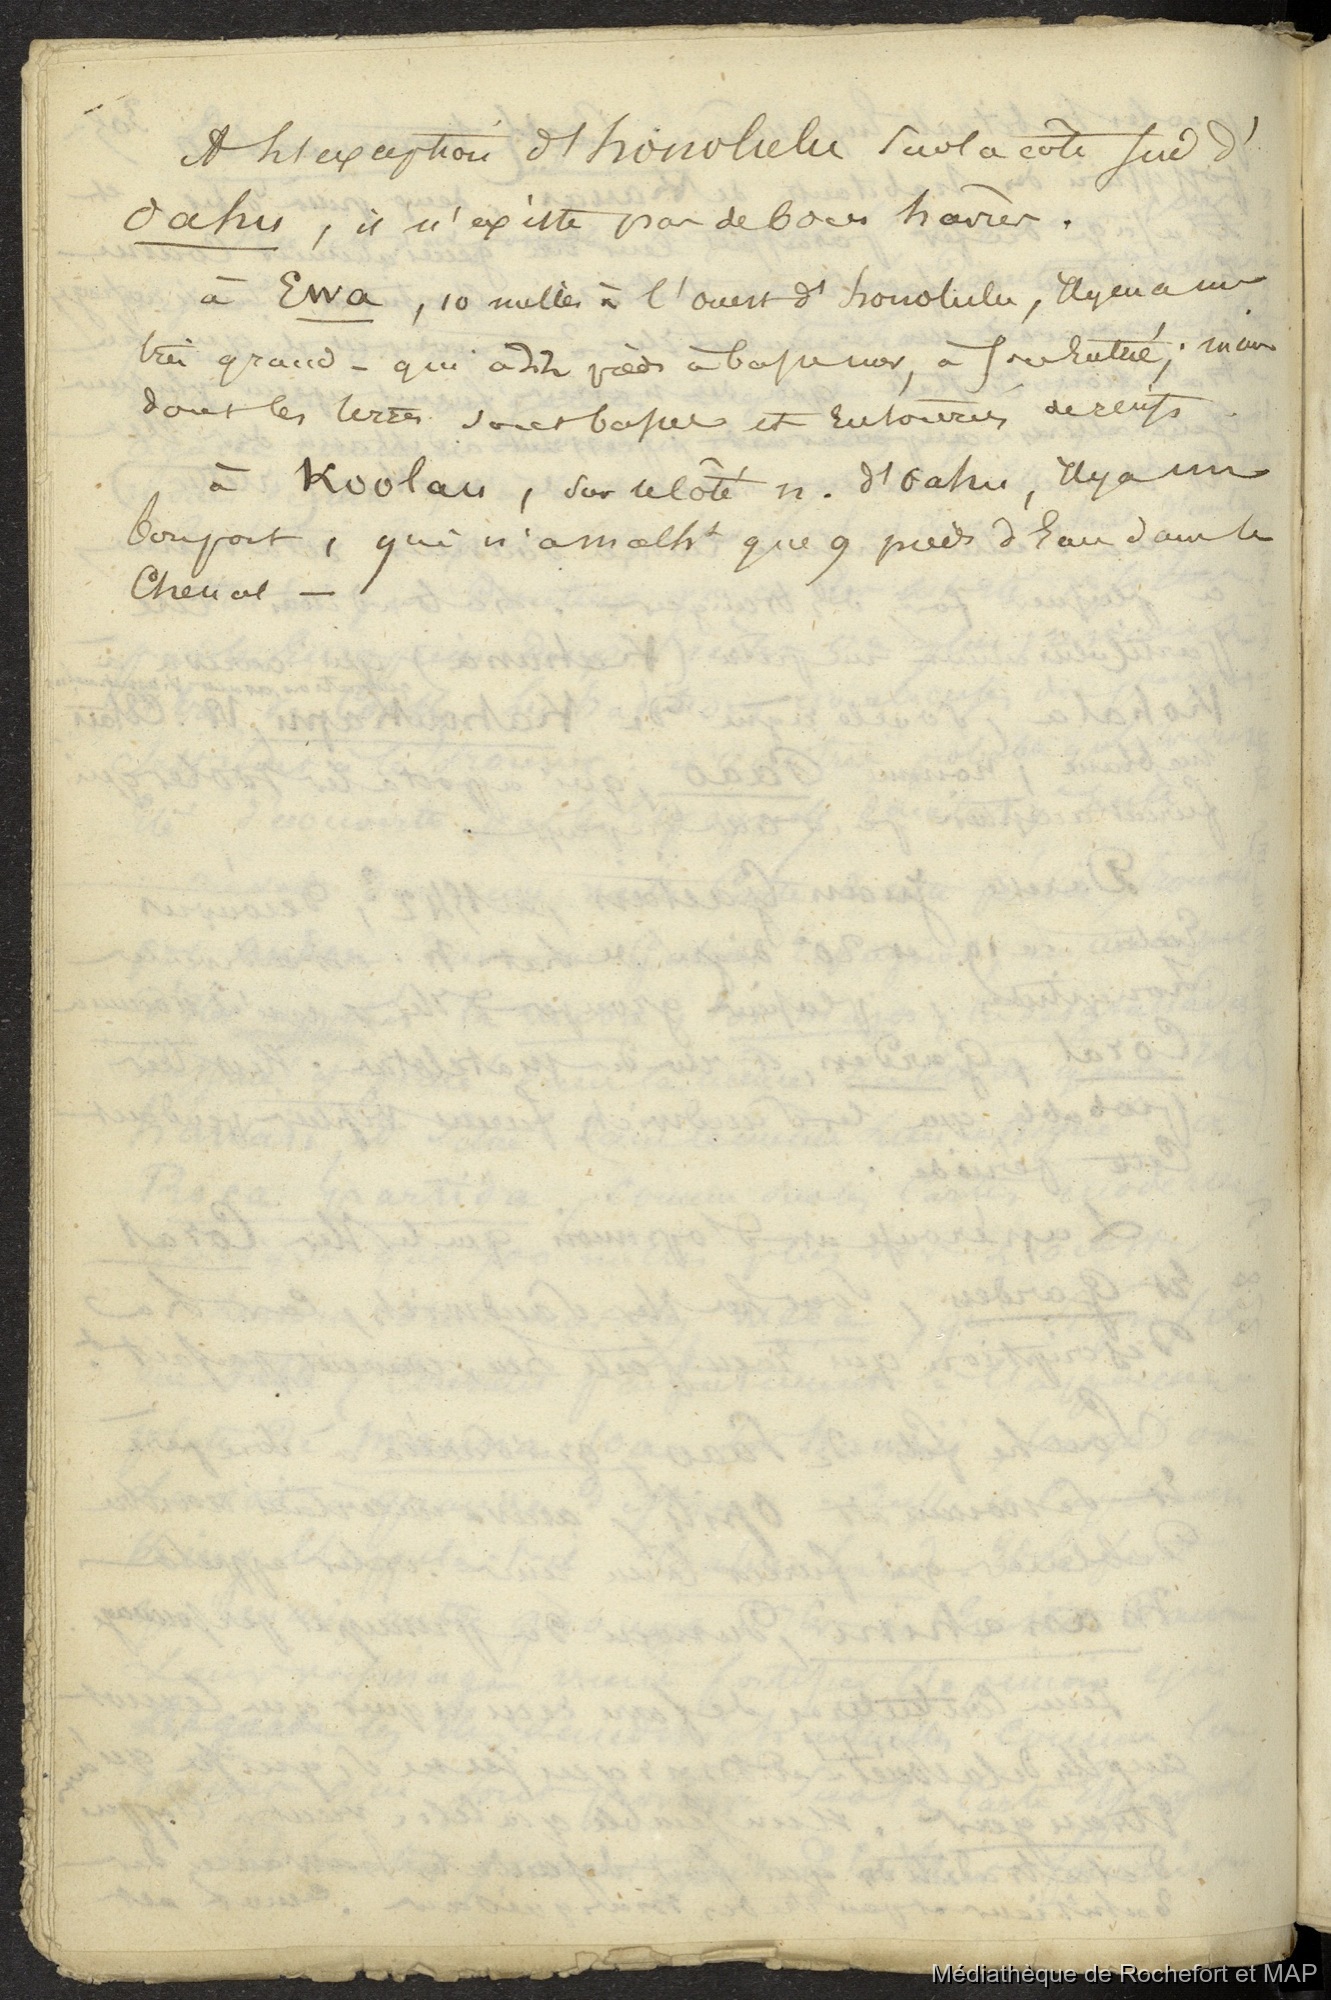 A l'exception d'honolulu sur la côte sud d'
oahu, il n'existe pas de bons havres.
à Ewa, 10 milles à l'ouest d'honolulu, il y en a un
très grand - qui a pieds à basse mer, à son Entrée; mais
dont les terres sont basses et Entourées de récifs
à Koolau, sur le côté n. d'oahu, il y a un
bon port, qui n'a malht que 9 pieds d'Eau dans le
Chenal -
Médiathèque de Rochefort et MAP